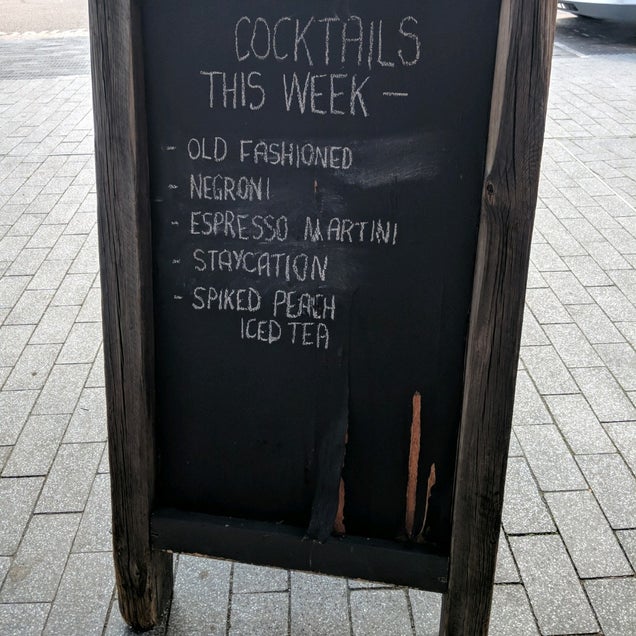 COCKTAILS
THIS WEEK -
- OLD FASHIONED
- NEGRONI
- ESPRESSO MARTINI
- STAYCATION
- SPIKED PEACH
ICED TEA